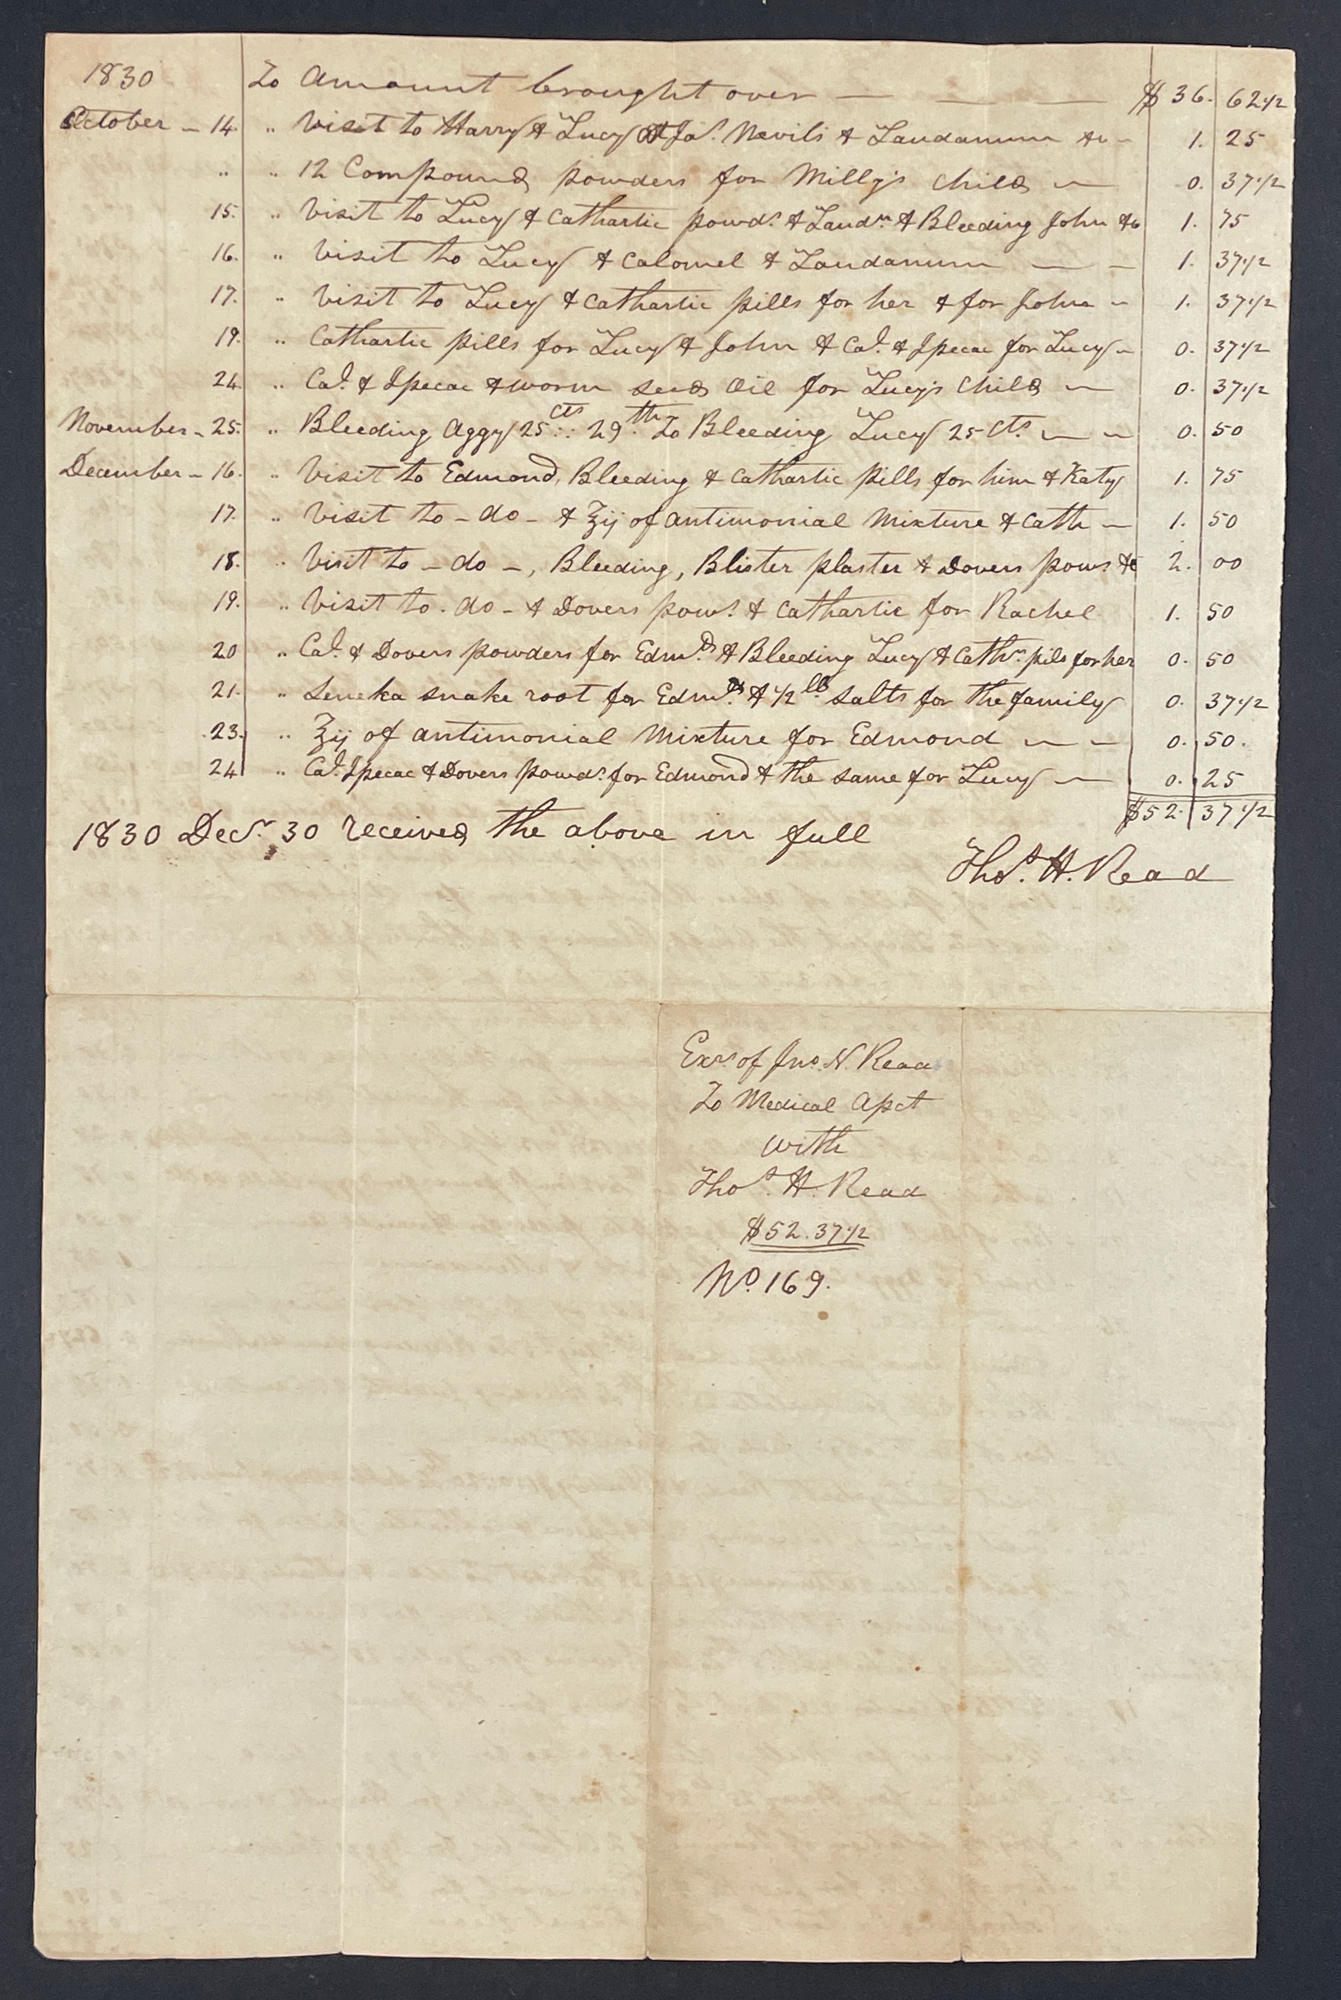 1830 To Amount brought over — — — $36. 62 1/2
October – 14 " Visit to Harry & Lucy at Jas. Nevils & Laudanum &c – 1. 25
" " 12 Compound powders for Milly's child — 0. 37 1/2
15. " Visit to Lucy & Cathartic powds. & Laudm. & Bleeding John &c 1. 75
16. " Visit to Lucy & Calomel & Laudanum — — 1. 37 1/2
17. " Visit to Lucy & Cathartic pills for her & for John – 1. 37 1/2
19. " Cathartic pills for Lucy & John & Cal. & Ipecac for Lucy – 0. 37 1/2
24. " Cal. & Ipecac & worm seed Oil for Lucy's child — 0. 37 1/2
November – 25. " Bleeding Aggy 25 cts : : 29th. To Bleeding Lucy 25 cts. — — 0. 50
December – 16. " Visit to Edmond, Bleeding & Cathartic pills for him & Katy 1. 75
17. " Visit to – do – & ℥ij of antimonial Mixture & Cath — 1. 50
18. " Visit to – do –, Bleeding, Blister plaster & Dovers pows &c 2. 00
19. " Visit to – do – & Dovers pows. & Cathartic for Rachel 1. 50
20 " Cal. & Dovers powders for Edmd. & Bleeding Lucy & Cathc. pils for her 0. 50
21. " Seneka snake root for Edmd. & 1/2 lb. salts for the family 0. 37 1/2
23. " ℥ij of antimonial Mixture for Edmond — — 0. 50.
24 " Cal. Ipecac & Dovers powds. for Edmond & the same for Lucy — 0. 25
$52. 37 1/2
1830 Decr. 30 received the above in full
Thos. H. Read
Exrs. of Jno. N. Read
To Medical Apct
with
Thos. H. Read
$52. 37 1/2
No. 169.